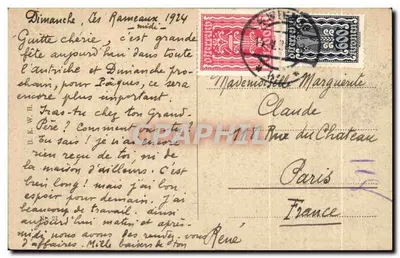 Dimanche, les Rameaux 1924
midi
Guitte chérie, c'est grande
fête aujourd'hui dans toute
l'Autriche et Dimanche pro-
chain, pour Pâques, ce sera
encore plus important.
Iras-tu chez ton Grand-
Père? Comment
sais? je n'ai
rien reçu de toi, ni de
la maison d'ailleurs. C'est
bien long! mais j'ai bon
espoir pour demain. J'ai
beaucoup de travail. ainsi
aujourd'hui matin et après-
midi nous avons des rendez-vous
d'affaires. Mille baisers de ton
René
Mademoiselle Marguerite
Claude
Rue du Chateau
Paris
France
CPARAMA
B.K.W.I.
WIEN
6000